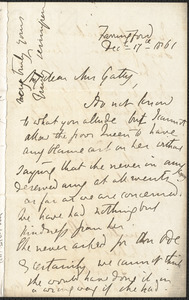 Farringford
Dec 17th 1861
My dear Mrs Gatty,
Do not know
to what you allude but I cannot
allow the poor Queen to have
any blame cast on her without
saying that she never in any way
deserved any at all events
as far as we are concerned
We have had nothing but
kindness from her
She never asked for the Ode
& certainly we cannot think
she would have done it in
a wrong way if she had
very truly yours
Tennyson